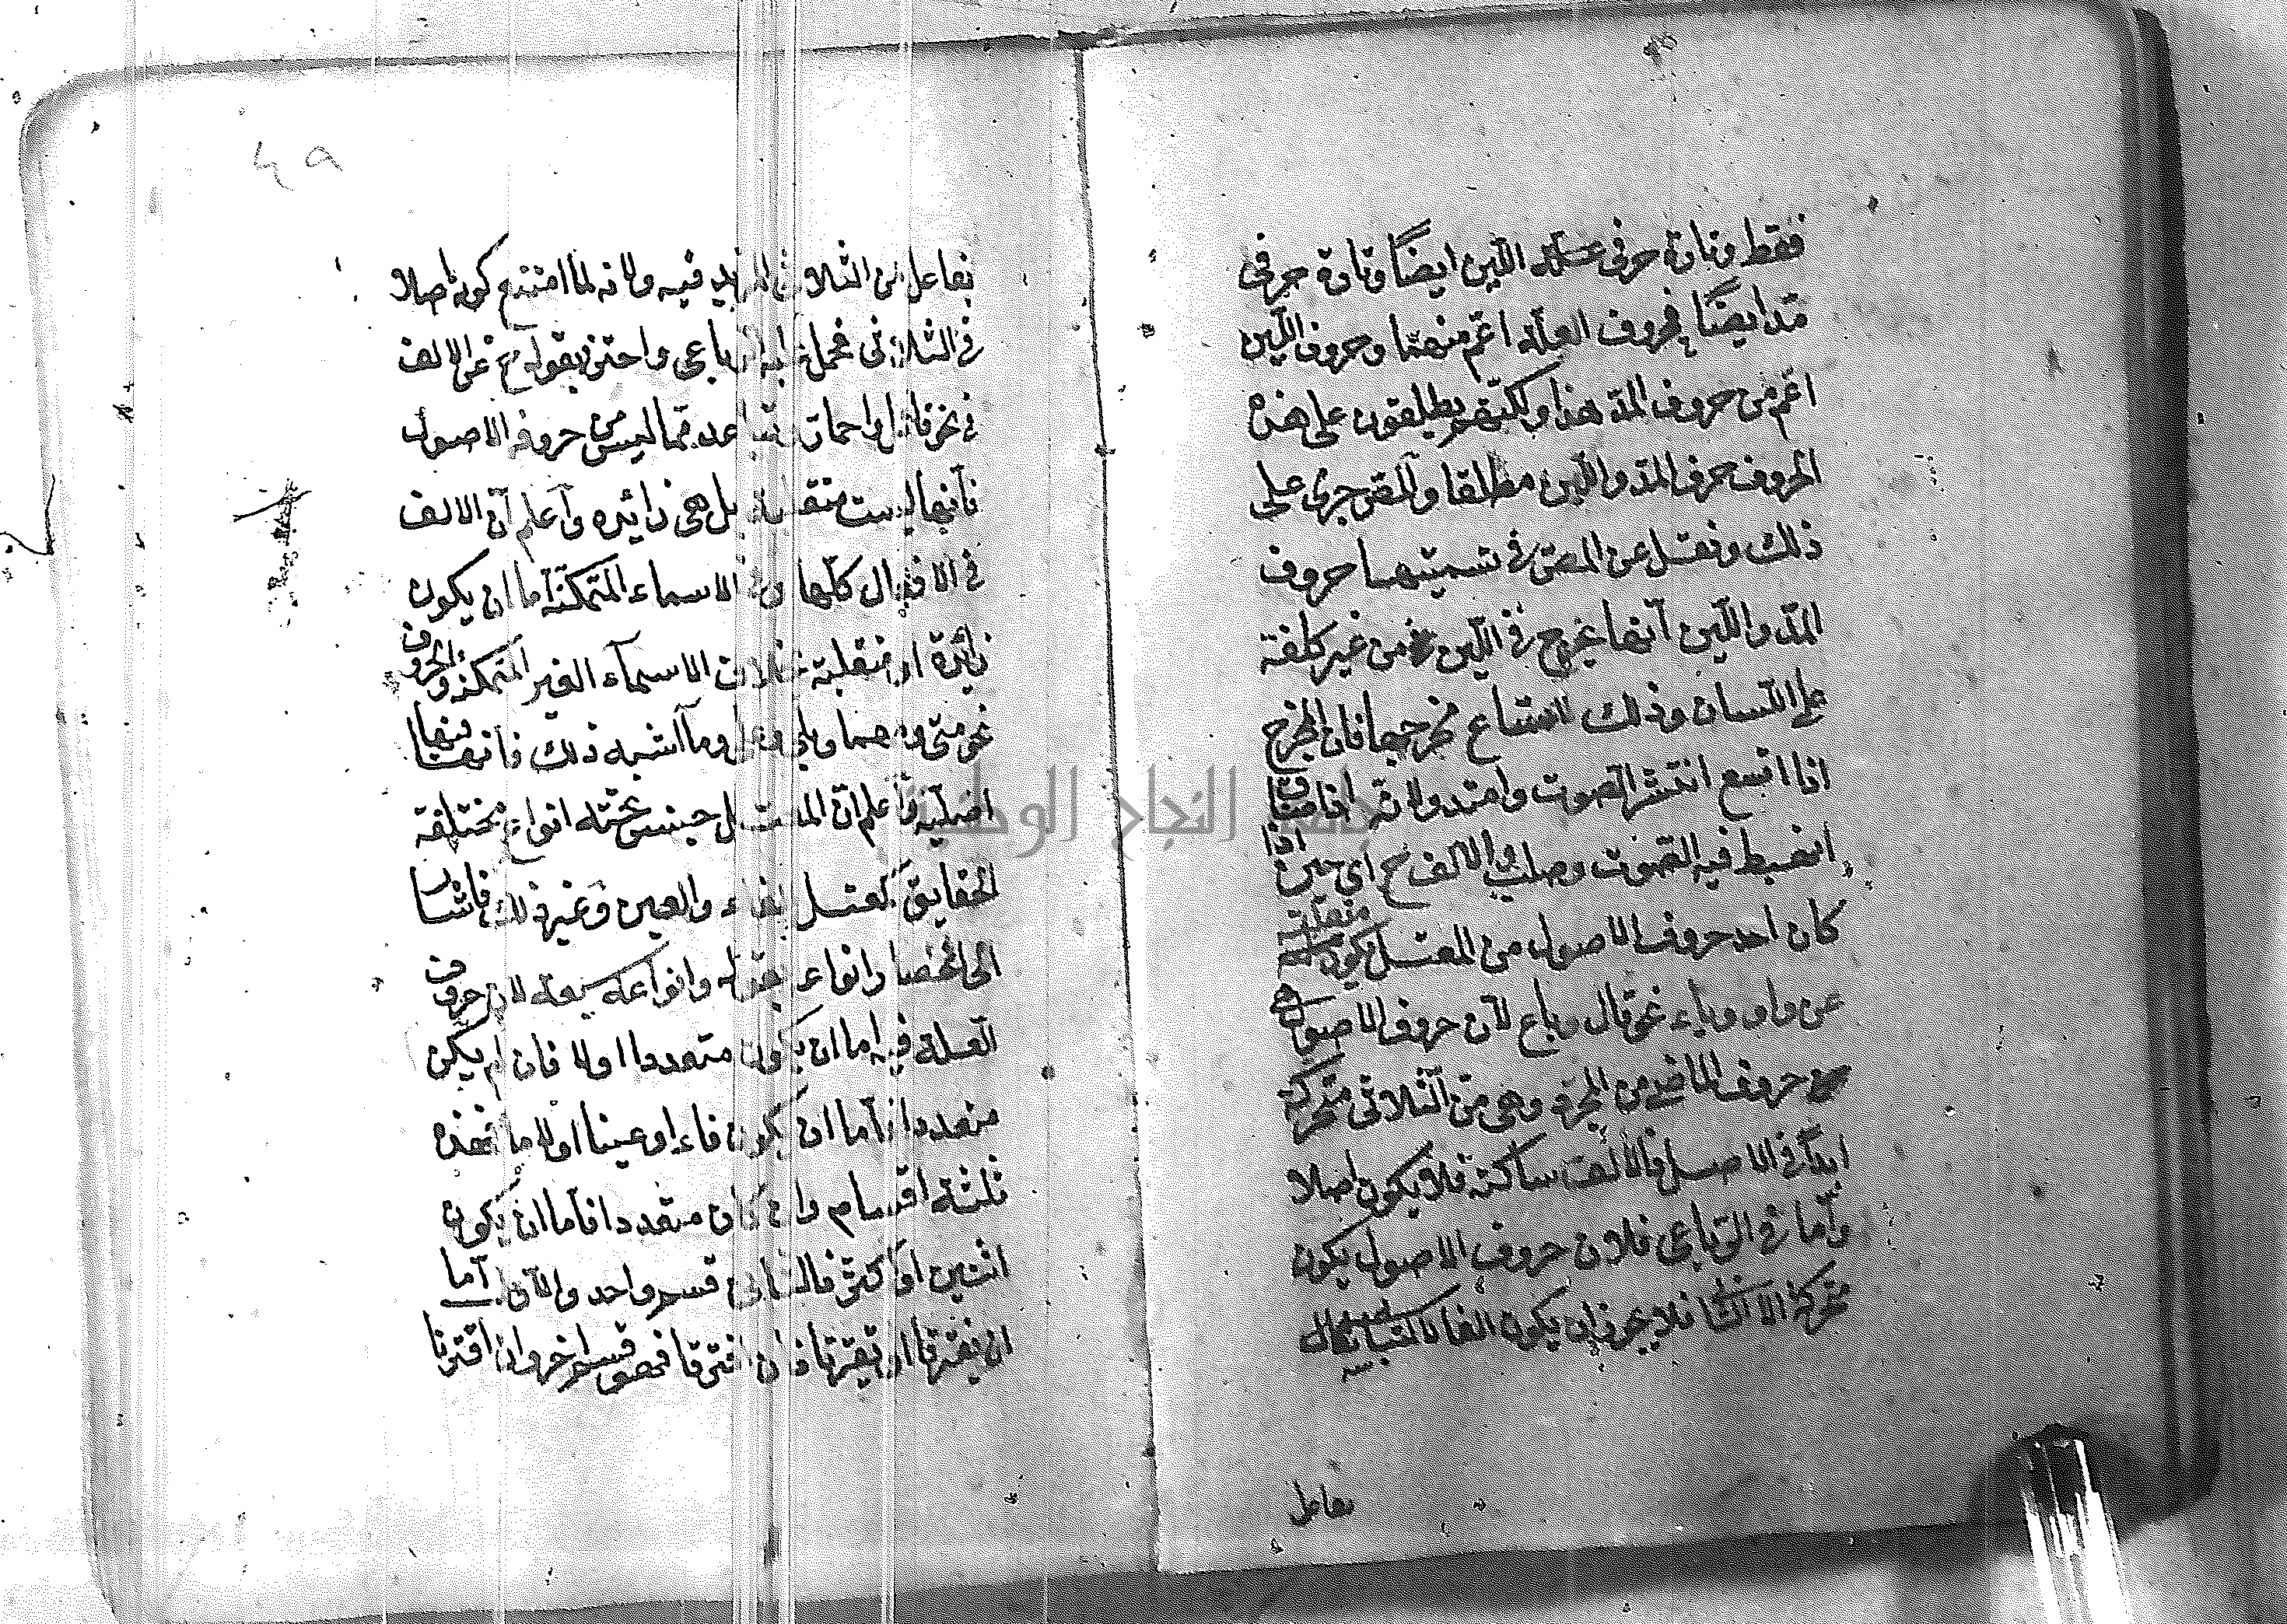 فقط وتارة حرفى علة اللين ايضًا وتارة حرفى
مد ايضًا فحروف العلة اعم منهما وحروف اللين
اعم من حروف المد هذا ولكنهم يطلقون على هذه
الحروف حروف المد واللين مطلقا والمص جرى على
ذلك ونقل عن المص فى تسميتها حروف
المد واللين انها يخرج فى اللين من غير كلفة
على اللسان وذلك لاتساع مخرجها فان المخرج
اذا اتسع انتشر الصوت وامتد ولان اذا ضاق
انضبط فيه الصوت وصلب والالف ح اى حين اذا
كان احد حروف الاصول من المعتل يكون منقلبة
عن واو وياء نحو قال وباع لان حروف الاصول هى
حروف الماضى من المجرد وهى من الثلاثى متحركة
ابدا فى الاصل والالف ساكنة فلا يكون اصلا
واما فى الرباعى فلان حروف الاصول يكون
متحركة الا الثانى فلا يجوز ان يكون الفا
تفاعل
٤٨
تفاعل من الثلاثى المزيد فيه ولانه لما امتنع كونه اصلا
فى الثلاثى فحمل عليه الرباعى واحترز بقوله ح عن الالف
فى نحو قاتل واحمار وتباعد مما ليس من حروف الاصول
فانها ليست منقلبة بل هى زائدة واعلم ان الالف
فى الافعال كلها وفى الاسماء المتمكنة اما ان يكون
زائدة او منقلبة بخلاف الاسماء الغير المتمكنة والحروف
نحو متى ومهما وبلى وعلى وما اشبه ذلك فانها فيها
اصلية واعلم ان المعتل جنس تحته انواع مختلفة
الحقايق كمعتل الفاء والعين وغير ذلك فاشار
الى انحصار انواعه بقوله وانواعه سبعة لان حروف
العلة فيه اما ان يكون متعددا اولا فان لم يكن
متعددا فاما ان يكون فاء او عينا او لاما فهذه
ثلثة اقسام وان كان متعددا فاما ان يكون
اثنين او اكثر فالثانى قسم واحد والاول اما
ان يفترقا او يقترنا فان افترقا فهو قسم اخر وان اقترنا
جامعة النجاح الوطنية